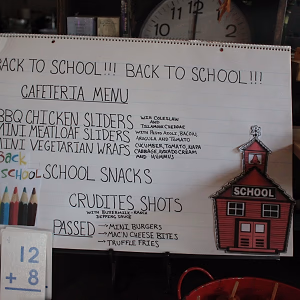 BACK TO SCHOOL!!! BACK TO SCHOOL!!!
CAFETERIA MENU
BBQ CHICKEN SLIDERS WITH COLESLAW AND TILLAMOOK CHEDDAR
MINI MEATLOAF SLIDERS WITH PESTO AIOLI, BACON, ARUGULA AND TOMATO
MINI VEGETARIAN WRAPS CUCUMBER, TOMATO, NAPA CABBAGE, AVOCADO CREAM AND HUMMUS
Back
SCHOOL SCHOOL SNACKS
CRUDITES SHOTS
WITH BUTTERMILK-RANCH DIPPING SAUCE
PASSED → MINI BURGERS
→ MAC'N CHEESE BITES
→ TRUFFLE FRIES
SCHOOL
12
+ 8